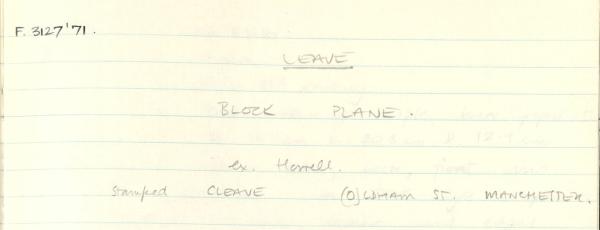 F. 3127'71.
LEAVE
BLOCK PLANE.
ex. Horrell.
Stamped CLEAVE (O)LDHAM ST. MANCHESTER.